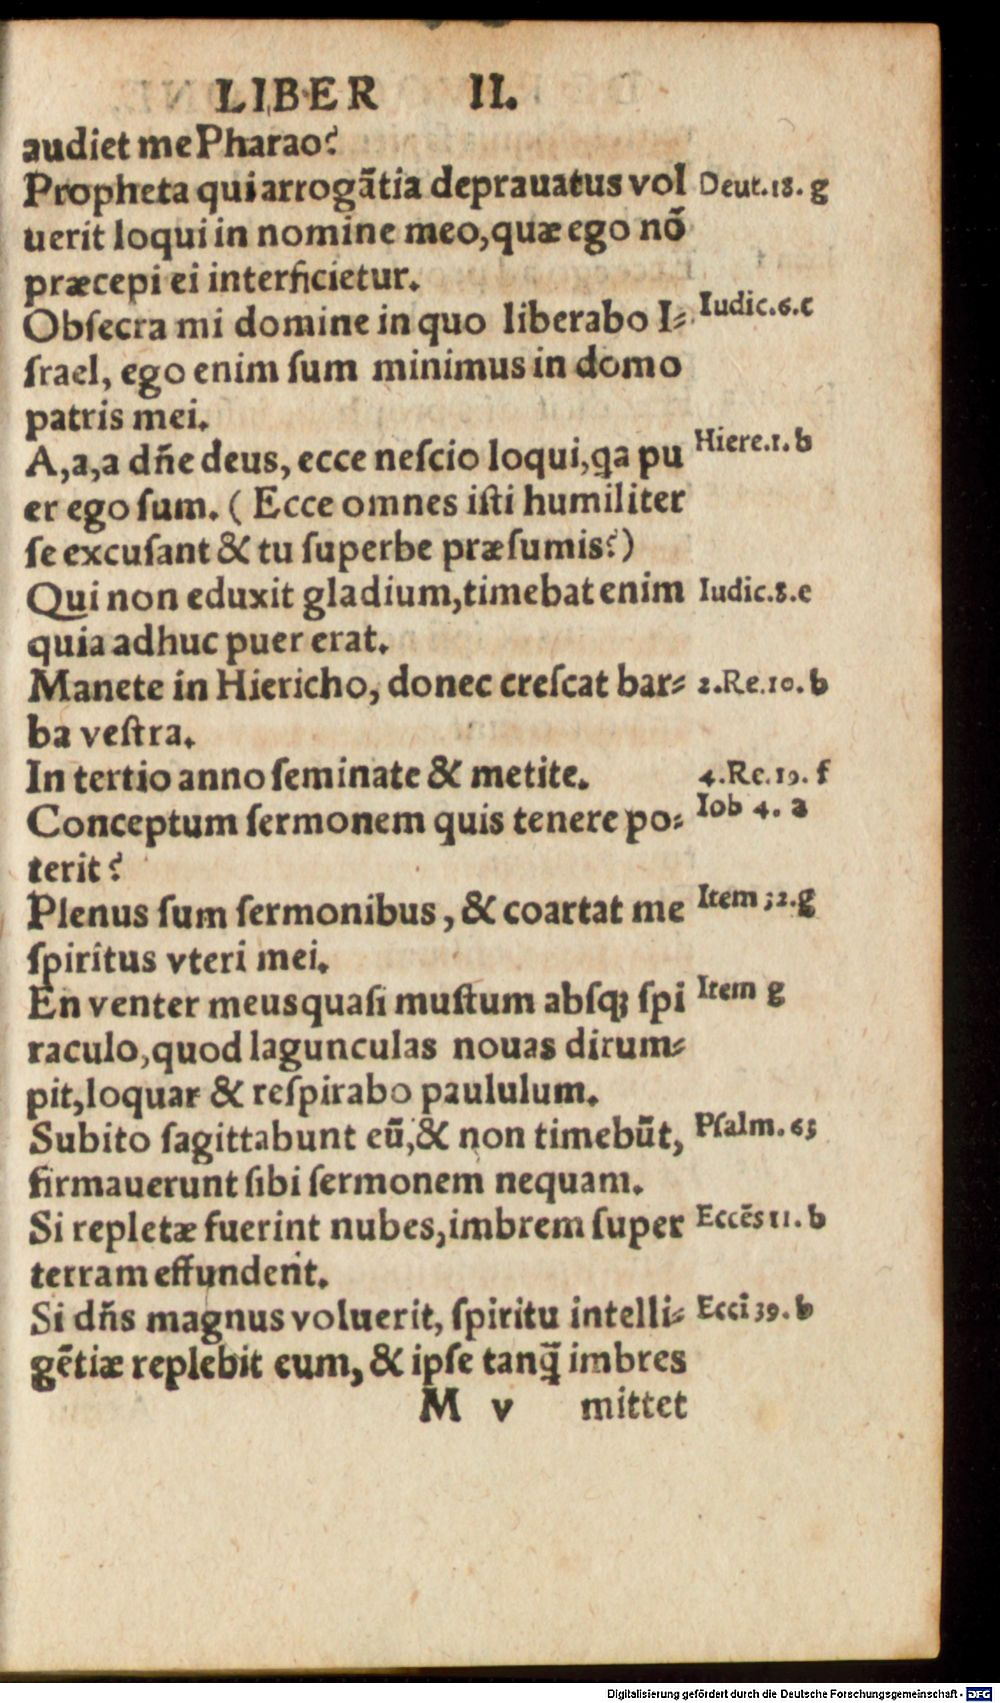 LIBER II.
audiet me Pharao?
Propheta qui arrogãtia deprauatus vol Deut.18. g
uerit loqui in nomine meo,quæ ego nõ
præcepi ei interficietur.
Obſecra mi domine in quo liberabo I⸗ Iudic.6.c
ſrael, ego enim ſum minimus in domo
patris mei.
A,a,a dñe deus, ecce neſcio loqui,qa pu Hiere.1. b
er ego ſum. ( Ecce omnes iſti humiliter
ſe excuſant & tu ſuperbe præſumis?)
Qui non eduxit gladium,timebat enim Iudic.8.e
quia adhuc puer erat.
Manete in Hiericho, donec creſcat bar⸗ 2.Re.10. b
ba veſtra.
In tertio anno ſeminate & metite. 4.Re.19. f
Conceptum ſermonem quis tenere po⸗ Iob 4. a
terit?
Plenus ſum ſermonibus, & coartat me Item 32.g
ſpiritus vteri mei.
En venter meus quaſi muſtum abſq; ſpi Item g
raculo,quod lagunculas nouas dirum⸗
pit,loquar & reſpirabo paululum.
Subito ſagittabunt eũ,& non timebũt, Pſalm.63
firmauerunt ſibi ſermonem nequam.
Si repletæ fuerint nubes,imbrem ſuper Eccẽs 11. b
terram effunderit.
Si dñs magnus voluerit, ſpiritu intelli⸗ Ecci 39. b
gẽtiæ replebit eum, & ipſe tanq̃ imbres
M v mittet
Digitalisierung gefördert durch die Deutsche Forschungsgemeinschaft - DFG